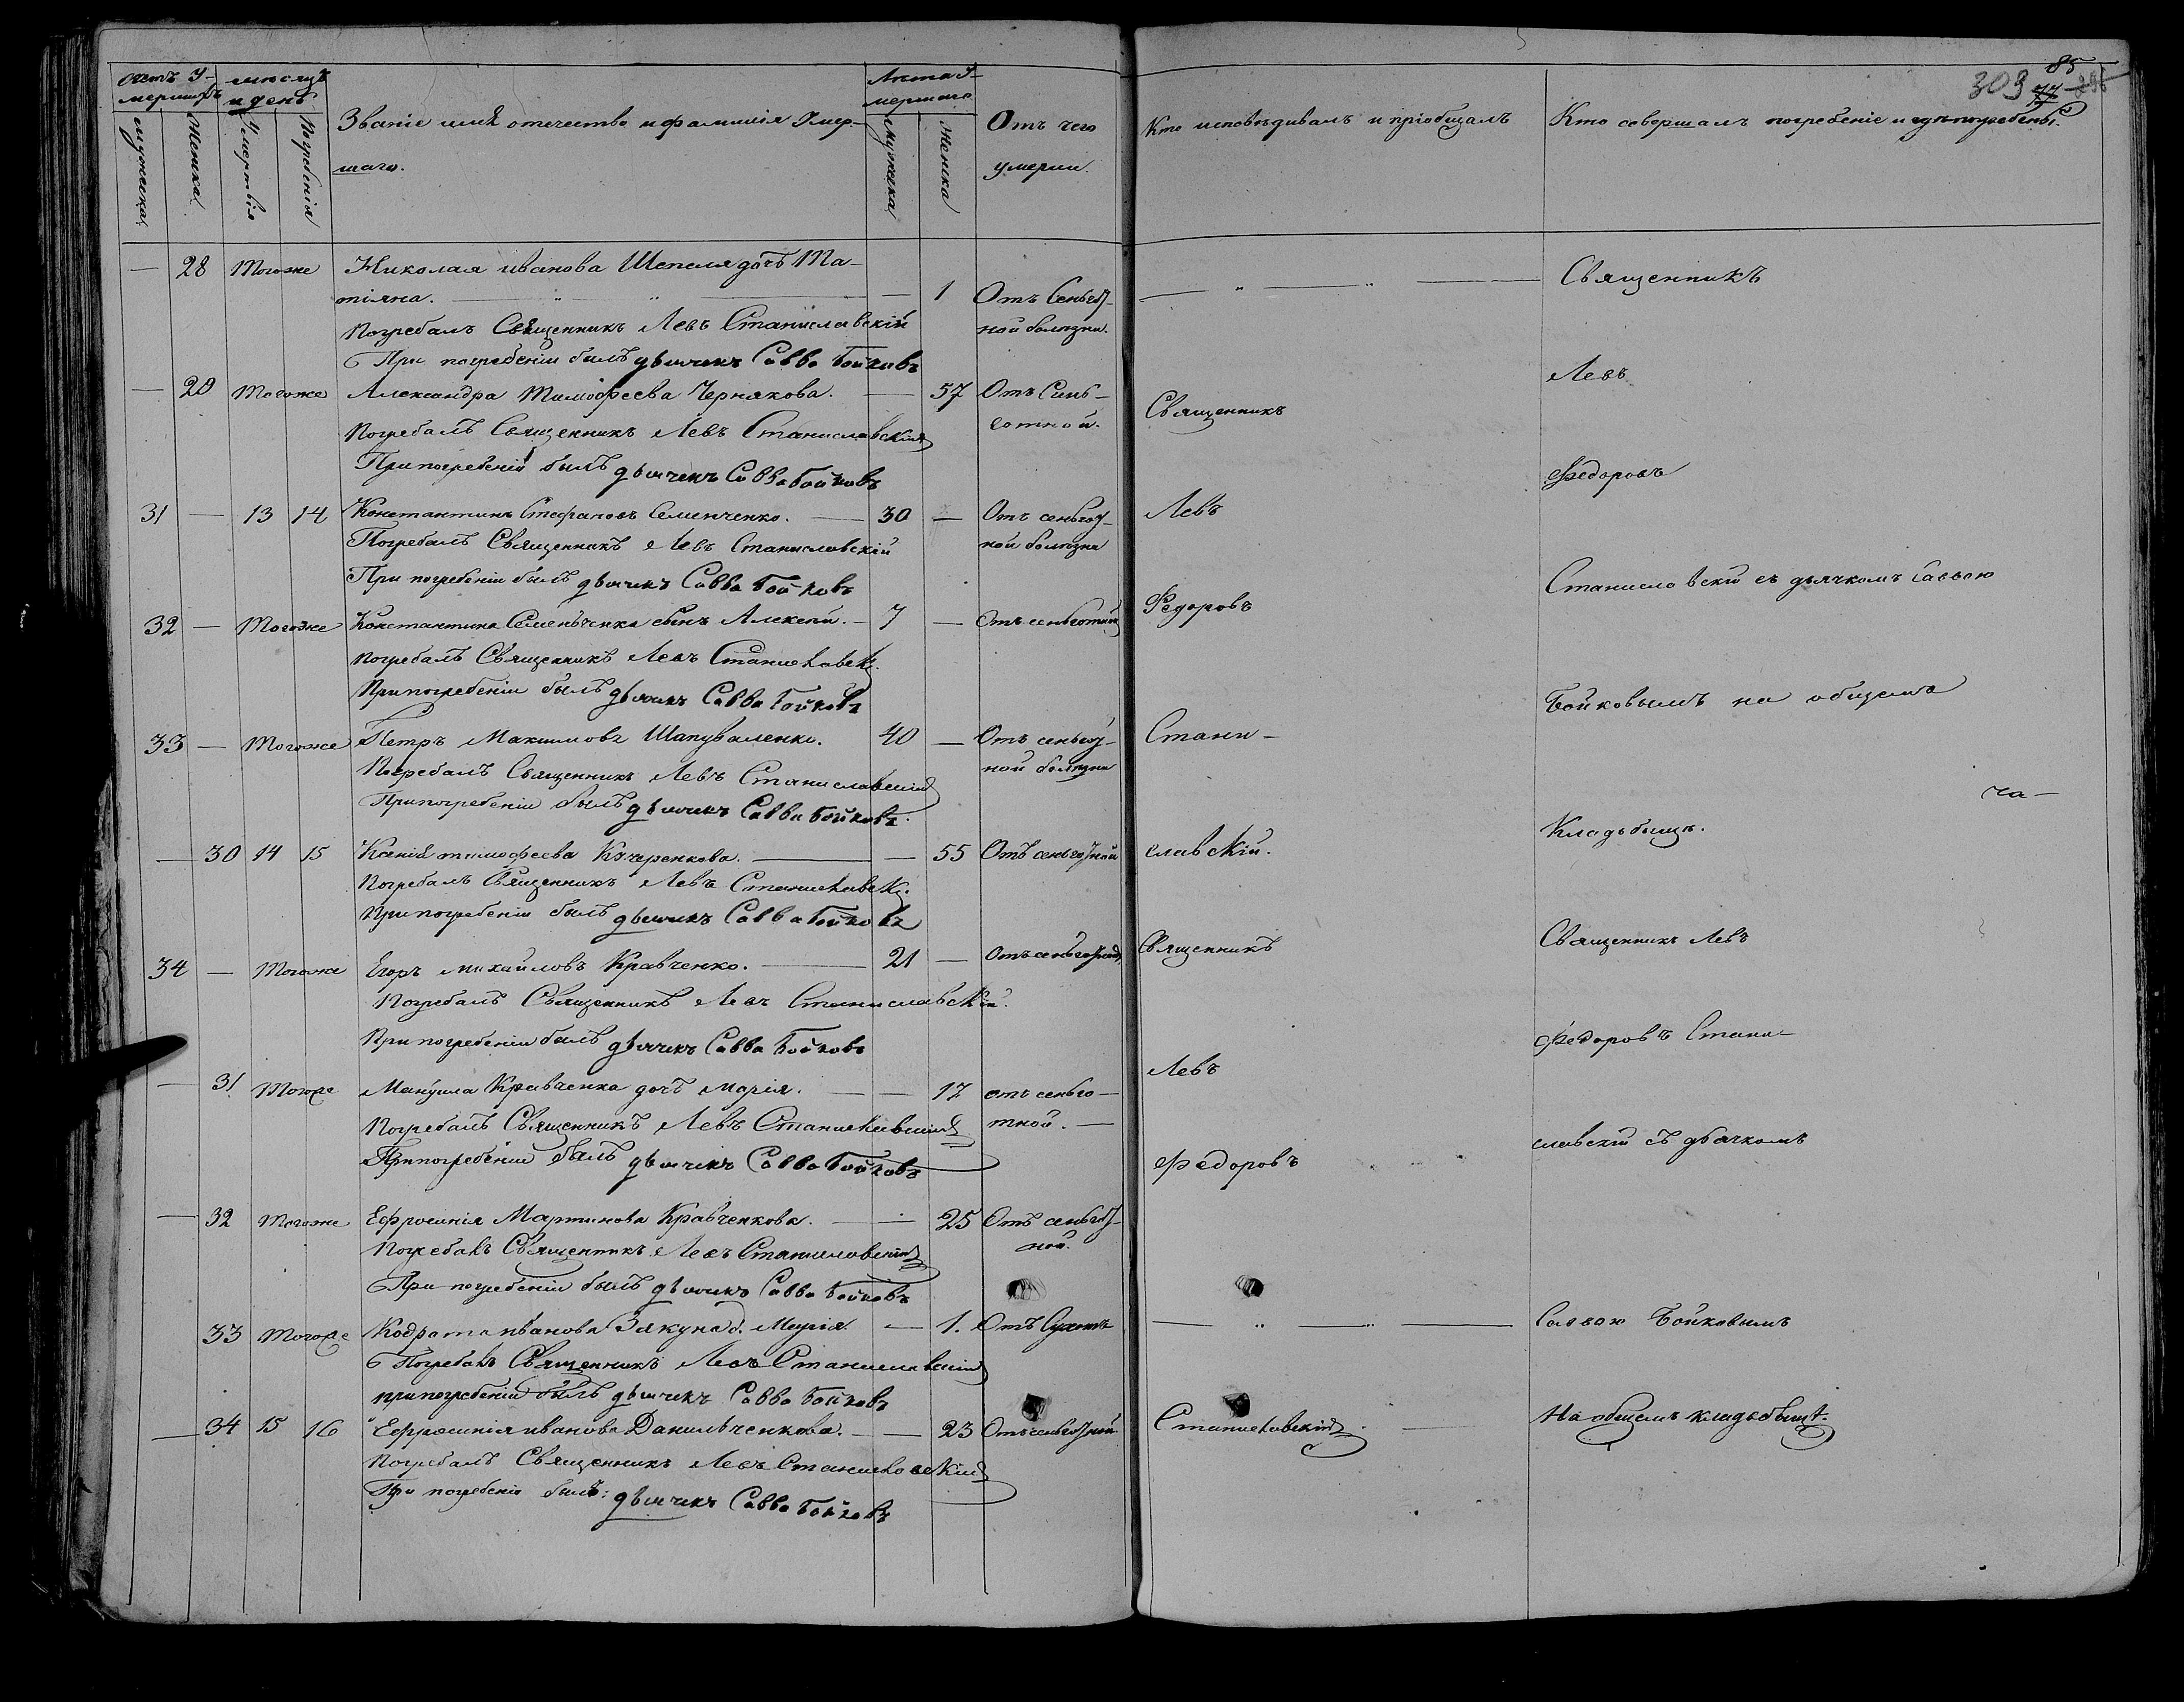 85
303
Счетъ У-
мершихъ
мѣсяцъ
и день
Лѣта У-
мершаго
мужеска
Женска
Смертвія
Погребѣнія
Званіе имя отечество и фамилія Умер-
шаго.
Мужеска
Женска
Отъ чего
умерли.
Кто исповѣдивалъ и пріобщалъ
Кто совершалъ погребеніе и гдѣ погребены.
— 28 Тогоже Николая иванова Шепеля дочь Та-
тіяна. — 1 Отъ
ной болѣзни.
Погребалъ Священникъ Левъ Станиславскій
При погребеніи былъ дьячекъ Савва Бойковъ
— 29 Тогоже Александра Тимофеева Чернякова. — 57 Отъ
сотной.
Погребалъ Священникъ Левъ Станиславскій
При погребеніи былъ дьячекъ Савва Бойковъ
31 — 13 14 Константинъ Стефановъ Семенченко. 30 — Отъ
ной болѣзни
Погребалъ Священникъ Левъ Станиславскій
При погребеніи былъ дьячекъ Савва Бойковъ
32 — Тогоже Константина Семеньченка сынъ Алексѣй. 7 — Отъ
Погребалъ Священникъ Левъ Станиславск.
При погребеніи былъ дьячекъ Савва Бойковъ
33 — Тогоже Петръ Максимовъ Шаповаленко. 40 — Отъ
ной болѣзни
Погребалъ Священникъ Левъ Станиславскій
При погребеніи былъ дьячекъ Савва Бойковъ
— 30 14 15 Ксенія тимофеева Кучеренкова. — 55 Отъ
Погребалъ Священникъ Левъ Станиславск.
При погребеніи былъ дьячекъ Савва Бойковъ
34 — Тогоже Егоръ михайловъ Кравченко. 21 — Отъ
Погребалъ Священникъ Левъ Станиславскій.
При погребеніи былъ дьячекъ Савва Бойковъ
— 31 Тогоже Мануила Кравченка дочь марія. — 17 отъ сеньго-
тной.
Погребалъ Священникъ Левъ Станиславскій
При погребеніи былъ дьячекъ Савва Бойковъ
— 32 Тогоже Ефросинія Мартинова Кравченкова. — 25 Отъ
ной.
Погребалъ Священникъ Левъ Станиславскій
При погребеніи былъ дьячекъ Савва Бойковъ
33 Тогоже Кодрата иванова Зякуна д. Марія. — 1. Отъ
Погребалъ Священникъ Левъ Станиславскій
при погребеніи былъ дьячекъ Савва Бойковъ
— 34 15 16 Ефросинія иванова Данильченкова. — 23 Отъ
Погребалъ Священникъ Левъ Станиславскій
При погребеніи былъ: дьячекъ Савва Бойковъ
Священникъ
Левъ
Федоровъ
Стани-
славскій.
Священникъ
Левъ
Федоровъ
Станиславскій.
Священникъ
Левъ
Федоровъ
Станиславскій съ дьячкомъ Саввою
Бойковымъ на общемъ
Кладьбищѣ.
Священникъ Левъ
Федоровъ Стани-
славскій съ дьячкомъ
Саввою Бойковымъ
На общемъ кладьбищѣ.